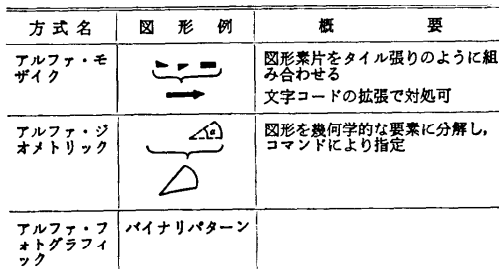 方式名 図形例 概要
アルファ・モ
ザイク
図形素片をタイル張りのように組
み合わせる
文字コードの拡張で対処可
アルファ・ジ
オメトリック
図形を幾何学的な要素に分解し,
コマンドにより指定
アルファ・フ
ォトグラフィ
ック
バイナリパターン